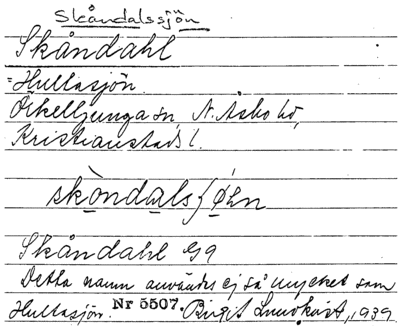 Skåndalssjön
Skåndahl
=Hultasjön.
Örkelljunga sn, N. Åsbo hd,
Kristianstads l.
skòndalsʃǿ̱n
Skåndahl G9
Detta namn användes ej så mycket som
Hultasjön. Nr 5507. Birgit Lundkvist, 1939